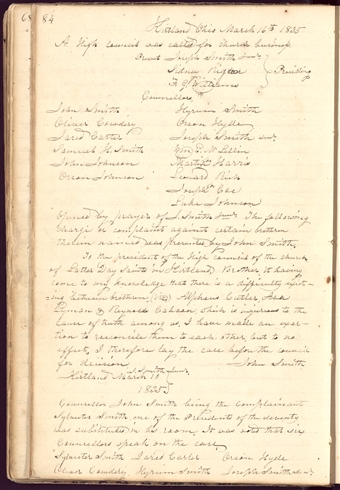 84
Kirtland Ohio March 16th 1835
A High council was called for church business
Present Joseph Smith Junr
Sidney Rigdon
F. G. Williams
Presiding
Councillors
John Smith Hyrum Smith
Oliver Cowdry Orson Hyde
Jared Carter Joseph Smith Senr
Samuel H. Smith Wm E. McLellin
John Johnson Martin Harris
Orson Johnson Leonard Rich
Joseph Coe
Luke Johnson
Opened by prayer of J. Smith Junr. The following
charge or complaint against certain brethren
therein named was presented by John Smith.
To the president of the High council of the church
of Latter Day Saints in Kirtland Brother, it having
come to my knowledge that there is a difficulty exist-
ing between brethren Alpheus Cutler, Asa
Lyman & Reynolds Cahoon which is injurious to the
cause of truth among us, I have made an exer-
tion to reconcile them to each other, but to no
effect, I therefore lay the case before the council
for decision John Smith
Kirtland March 16
1835
Councillor John Smith being the complainant
Sylvester Smith one of the Presidents of the seventy
was substituted in his room. It was voted that six
Councillors speak on the case,
Sylvester Smith Jared Carter Orson Hyde
Oliver Cowdery Hyrum Smith Joseph Smith